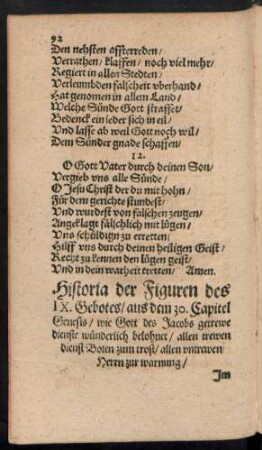 92
Den nehsten effterreden/
Verrathen/ klaffen/ noch viel mehr/
Regiert in allen Stedten/
Verleumbden falscheit vberhand/
Hat genomen in allem Land/
Welche Sünde Gott straffet/
Bedenck ein ieder sich in eil/
Vnd lasse ab weil Gott noch wil/
Dem Sünder gnade schaffen/
12.
O Gott Vater durch deinen Son/
Vergieb vns alle Sünde/
O Jesu Christ der du mit hohn/
Für dem gerichte stundest/
Vnd wurdest von falschen zeugen/
Angeklagt fälschlich mit lügen/
Vns schüldign zu erretten/
Hilff vns durch deinen heiligen Geist/
Recht zu kennen den lügen geist/
Vnd in dein warheit tretten/ Amen.
Historia der Figuren des
IX. Gebotes/ aus dem 30. Capitel
Genesis/ wie Gott des Jacobs getrewe
dienste wünderlich belohnet/ allen trewen
dienst Boten zum trost/ allen vntrawen
Herrn zur warnung/
Im